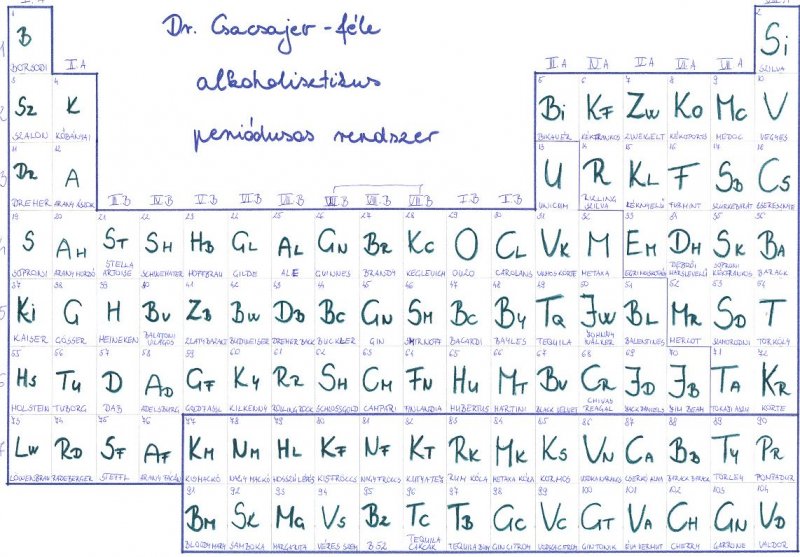 Dr. Csacsajer-féle
alkoholisztikus
periódusos rendszer
I. A
II. A
III. A IV. A V. A VI. A VII. A
III. B IV. B V. B VI. B VII. B VIII. B VIII. B VIII. B I. B II. B
1 2
B Si
BORSODI SZILVA
3 4 5 6 7 8 9 10
Sz K Bi Kf Zw Ko Mc V
SZALON KŐBÁNYAI BIKAVÉR KÉKFRANKOS ZWEIGELT KÉKOPORTÓ MEDOC VEGYES
11 12 13 14 15 16 17 18
Dr A U R Kl F Sb Cs
DREHER ARANY ÁSZOK UNICUM RIZLING SZILVA KÉKNYELŰ FURMINT SZÜRKEBARÁT CSERESZNYE
19 20 21 22 23 24 25 26 27 28 29 30 31 32 33 34 35 36
S Ah St Sh Hb Gl Al Gn Br Kc O Cl Vk M Em Dh Sk Ba
SOPRONI ARANY HORDÓ STELLA ARTOISE HOFFBRAU GILDE ALE GUINNES BRANDY KEGLEVICH OUZO CAROLANS VILMOSKÖRTE METAXA EGRI MUSKOTÁLY DEBRŐI HÁRSLEVELŰ SOPRONI KÉKFRANKOS BARACK
37 38 39 40 41 42 43 44 45 46 47 48 49 50 51 52 53 54
Ki G H Bv Zb Bw Db Bc Gn Sm Bc By Tq Jw Bl Mr Sd T
KAISER GÖSSER HEINEKEN BALATONI VILÁGOS ZLATY BAZANT BUDWEISER DREHER BACK BUCKLER GIN SMIRNOFF BACARDI BAYLES TEQUILA JOHNNY WALKER BALENTINES MERLOT SZAMORODNI TÖRKÖLY
55 56 57 58 59 60 61 62 63 64 65 66 67 68 69 70 71 72
Hs Tu D Ad Gf Ky Rr Sh Cm Fn Hu Mt Bv Cr Jd Jb Ta Kr
HOLSTEIN TUBORG DAB ADELSBURG KILKENNY ROLLING ROCK SCHLOSSGOLD CAMPARI FINLANDIA HUBERTUS MARTINI BLACK VELVET CHIVAS REAGAL JACK DANIELS JIM BEAM TOKAJI ASZÚ KÖRTE
73 74 75 76 77 78 79 80 81 82 83 84 85 86 87 88 89 90
Lw Rd Sf Af Km Nm Hl Kf Nf Kt Rk Mk Ks Vn Ca Bb Ty Pr
LÖWENBRAU RADEBERGER STEFFL ARANY FÁCÁN KISMACKÓ NAGY MACKÓ HOSSZÚLÉPÉS KISFRÖCCS NAGYFRÖCCS KUTYATEJ RUM KÓLA METAXA KÓLA KORMOS VODKA NARANCS CSERKÓ ALMA BARACK BARACK TÖRLEY POMPADUR
91 92 93 94 95 96 97 98 99 100 101 102 103 104
Bm Sk Mg Vs B2 Tc Tb Gc Vc Gt Va Ch Gn Vd
BLOODY MARY SAMBOKA MARGRITA VÉRES SZEM B 52 TEQUILA CARCAR TEQUILA BUM GIN CITROM VODKA CITROM GIN TONIK ÉVA VERMUT CHERRY GARRONE VALDOR